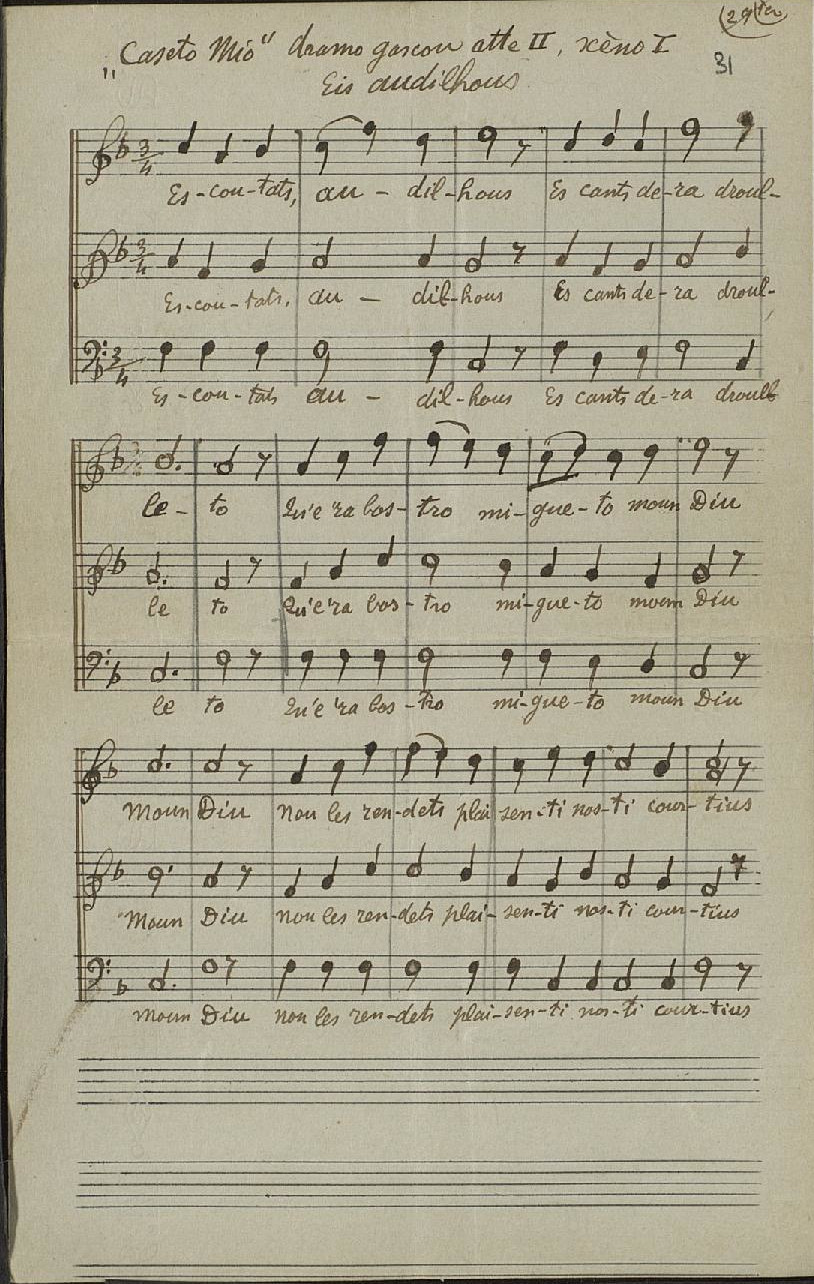 (29 ter)
31
"Caseto Mio" dramo gascou atte II, xèno I
Eis audilhous
3/4 Es-cou-tats, au - dil-hous Es cants de-ra droul-
3/4 Es-cou-tats, au - dil-hous Es cants de-ra droul-
3/4 Es-cou-tats au - dil-hous Es cants de-ra droull
le - to Qu'e'ra bos-tro mi-gue-to moun Diu
le to Qu'e'ra bos-tro mi-gue-to moun Diu
le to Qu'e'ra bos-tro mi-gue-to moun Diu
Moun Diu Nou les ren-dets plai sen-ti nos-ti cour-tius
Moun Diu nou les ren-dets plai-sen-ti nos-ti cour-tius
Moun Diu nou les ren-dets plai-sen-ti nos-ti cour-tius